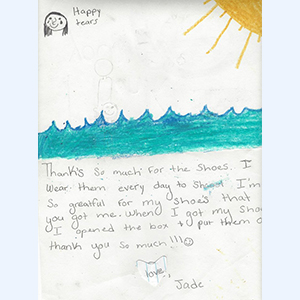 Happy
tears
Thank's so much for the shoes. I
wear them every day to I'm
so greatful for my shoes that
you got me. When I got my
I opened the box & put them
thank you so much!!!
love,
Jade